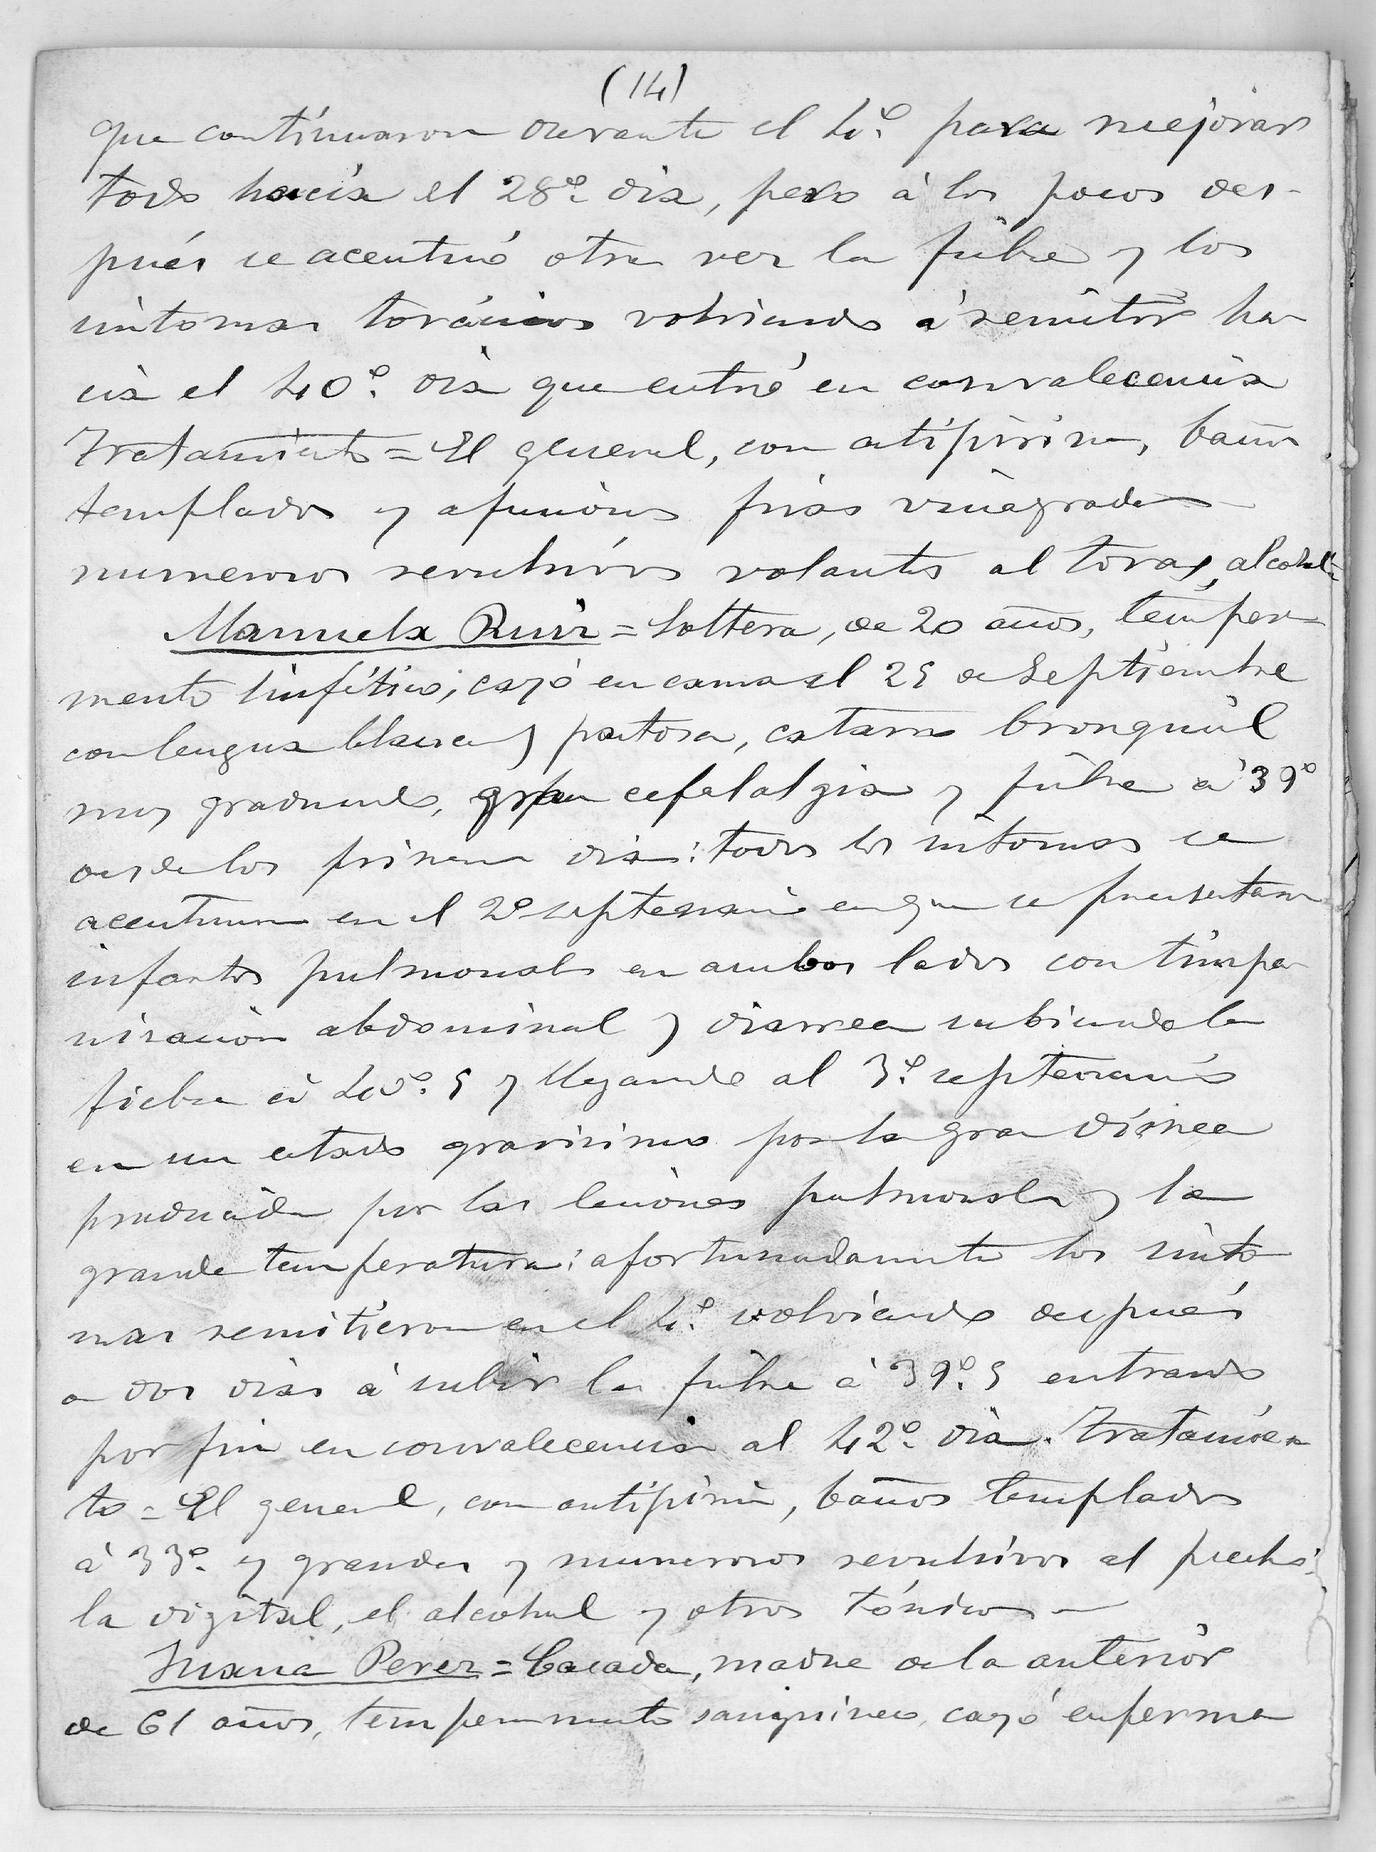 (14)
que continuaron durante el 4º. para mejorar
todo hacia el 28º. dia, pero á los pocos des-
pués se acentuó otra vez la fiebre y los
sintomas torácicos volviendo á remitir ha-
cia el 40º. dia que entró en convalecencia
Tratamiento = El general, con antipirina, baños
templados y afusiones frias vinagradas
numerosos revulsivos volantes al torax, alcohol
Manuela Ruiz = Soltera, de 20 años, tempera-
mento linfático; cayó en cama el 25 de Septiembre
con lengua blanca y pastosa, catarro bronquial
muy graduado, gran cefalalgia y fiebre á 39º
desde los primeros dias: todos los sintomas se
acentuaron en el 2º septenario en que se presentaron
infartos pulmonales en ambos lados con timpa-
nizacion abdominal y diarrea subiendo la
fiebre á 40º. 5 y llegando al 3º. septenario
en un estado gravisimo por la gran disnea
producida por las lesiones pulmonales y la
grande temperatura: afortunadamente los sinto-
mas remitieron en el 4º. volviendo después
a dos dias á subir la fiebre á 39º. 5 entrando
por fin en convalecencia al 42º. dia. Tratamien-
to = El general, con antipirina, baños templados
á 33º. y grandes y numerosos revulsivos al pecho:
la digital, el alcohol y otros tónicos —
Juana Perez = Casada, madre de la anterior
de 61 años, temperamento sanguineo, cayó enferma